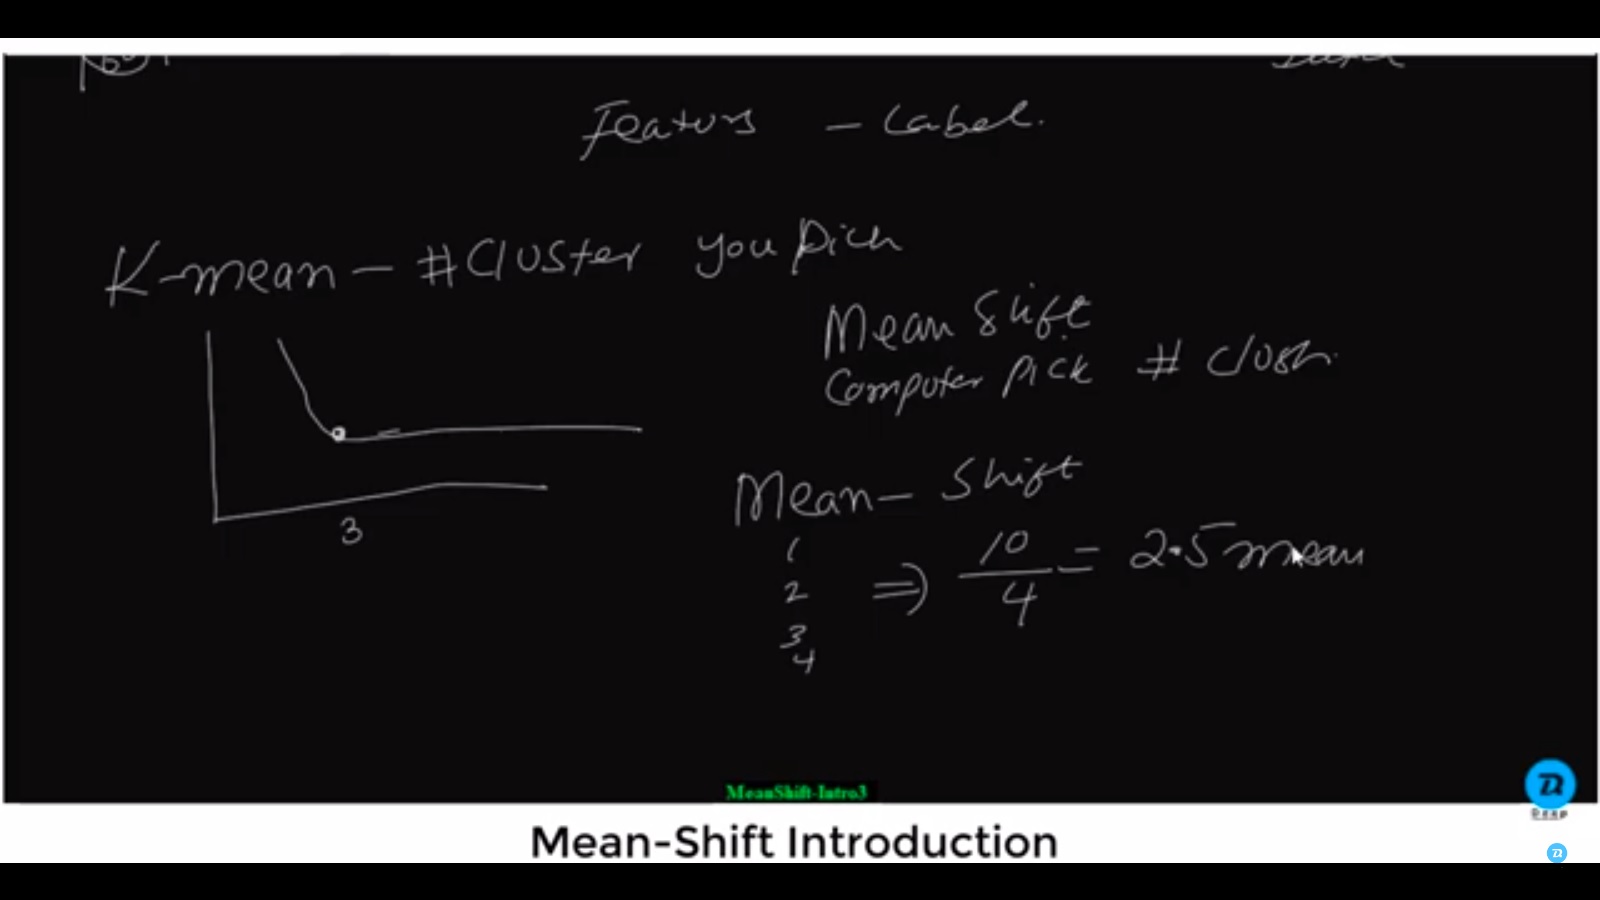 Features - Label.
K-mean - #Cluster you pick
Mean Shift
Computer Pick # clush
3
Mean - Shift
1
2 ⇒ 10/4 = 2.5 mean
3
4
MeanShift-Intro3
DEEP
Mean-Shift Introduction